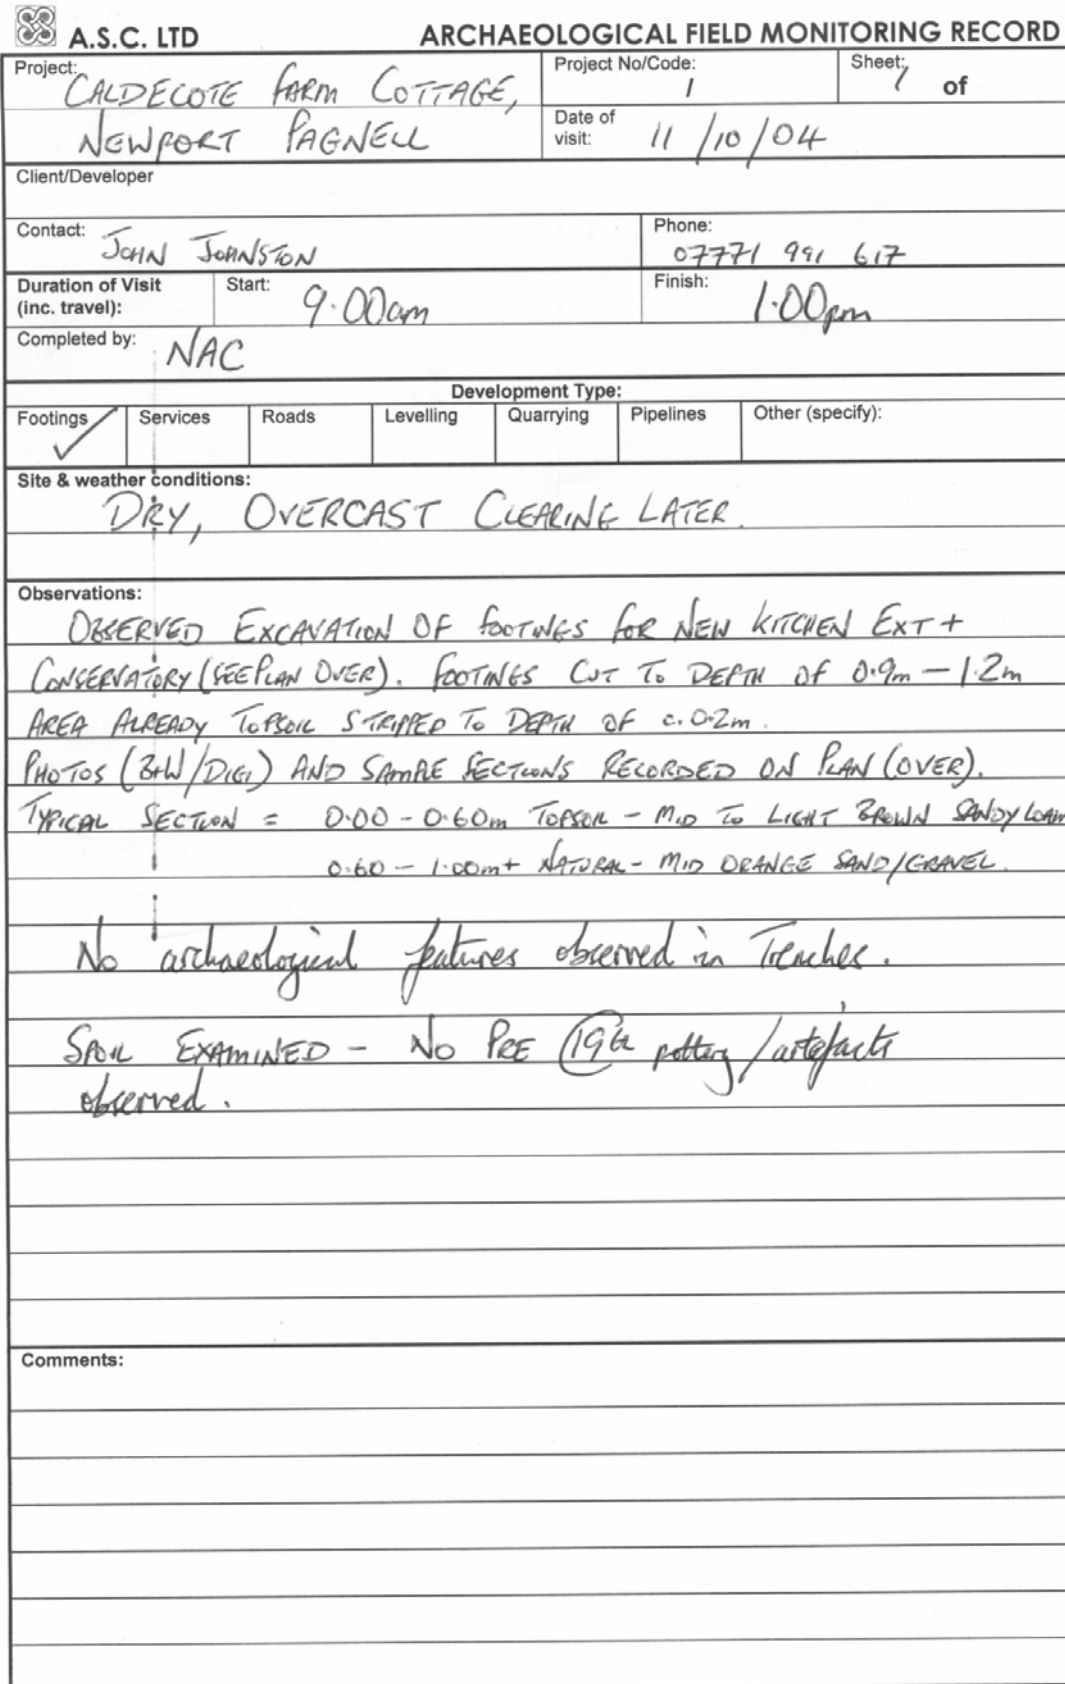 A.S.C. LTD
ARCHAEOLOGICAL FIELD MONITORING RECORD
Project: CALDECOTE FARM COTTAGE,
NEWPORT PAGNELL
Project No/Code:
/
Sheet: 1 of
Date of visit: 11/10/04
Client/Developer
Contact: JOHN JOHNSTON
Phone: 07771 991 617
Duration of Visit
(inc. travel):
Start: 9.00am
Finish: 1.00pm
Completed by: NAC
Development Type:
Footings ✓ Services Roads Levelling Quarrying Pipelines Other (specify):
Site & weather conditions:
DRY, OVERCAST CLEARING LATER.
Observations:
OBSERVED EXCAVATION OF FOOTINGS FOR NEW KITCHEN EXT +
CONSERVATORY (SEE PLAN OVER). FOOTINGS CUT TO DEPTH OF 0.9m – 1.2m
AREA ALREADY TOPSOIL STRIPPED TO DEPTH OF c. 0.2m.
PHOTOS (B+W/DIGI) AND SAMPLE SECTIONS RECORDED ON PLAN (OVER).
TYPICAL SECTION = 0.00 – 0.60m TOPSOIL – MID TO LIGHT BROWN SANDY LOAM
0.60 – 1.00m+ NATURAL – MID ORANGE SAND/GRAVEL.
No archaeological features observed in Trenches.
SPOIL EXAMINED – NO PRE C19th pottery/artefacts
observed.
Comments: